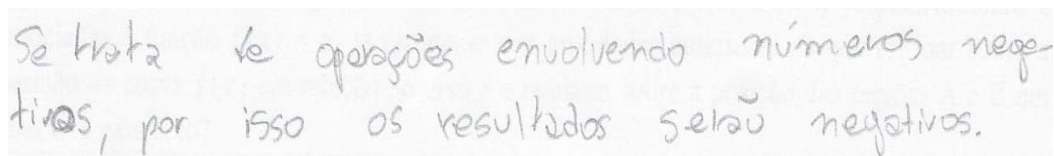 Se trata de operações envolvendo números nega-
tivos, por isso os resultados serão negativos.